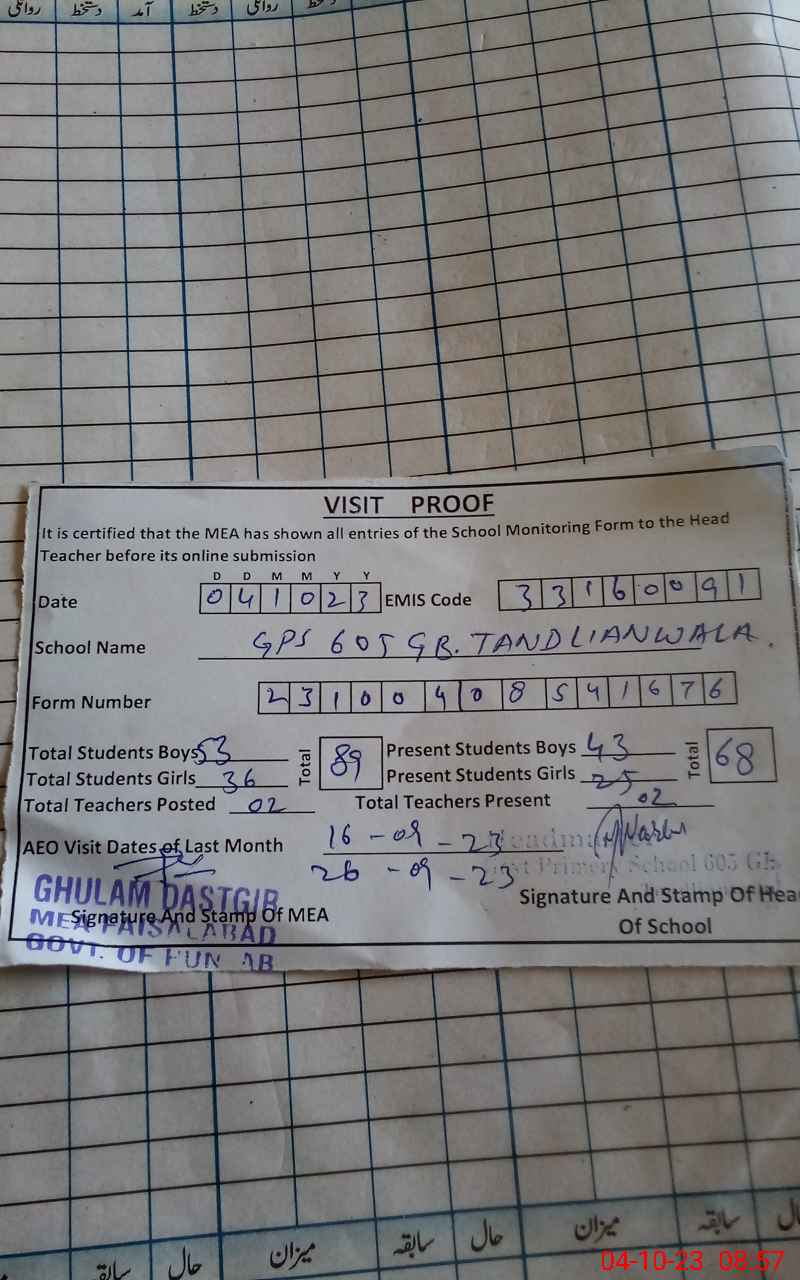 روانگی دستخط آمد دستخط روانگی دستخط
VISIT PROOF
It is certified that the MEA has shown all entries of the School Monitoring Form to the Head
Teacher before its online submission
D D M M Y Y
Date 0 4 1 0 2 3 EMIS Code 3 3 1 6 0 0 9 1
School Name GPS 605 GB. TANDLIANWALA.
Form Number 2 3 1 0 0 4 0 8 5 4 1 6 7 6
Total Students Boys 53 Total 89 Present Students Boys 43 Total 68
Total Students Girls 36 Present Students Girls 25
Total Teachers Posted 02 Total Teachers Present 02
AEO Visit Dates of Last Month 16-09-23
26-09-23
Primary School 605 GB
GHULAM DASTGIR
MEA FAISALABAD
GOVT. OF PUNJAB
Signature And Stamp Of MEA
Signature And Stamp Of Hea
Of School
سابقہ حال میزان سابقہ حال میزان سابقہ
04-10-23 08:57